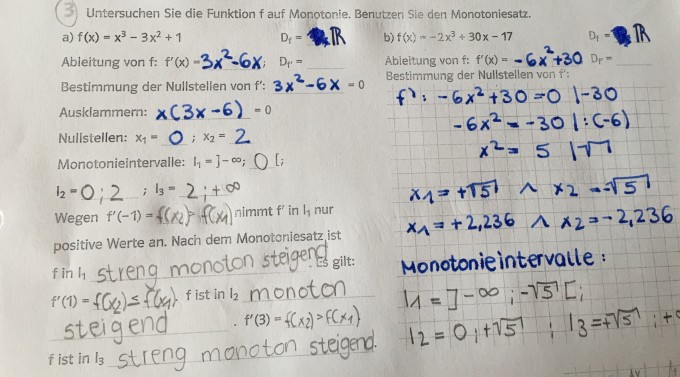 3 Untersuchen Sie die Funktion f auf Monotonie. Benutzen Sie den Monotoniesatz.
a) f(x) = x³ - 3x² + 1 Df = ℝ
Ableitung von f: f'(x) = 3x²-6x; Df' =
Bestimmung der Nullstellen von f': 3x²-6x = 0
Ausklammern: x(3x-6) = 0
Nullstellen: x₁ = 0 ; x₂ = 2
Monotonieintervalle: I₁ = ]-∞; 0 [;
I₂ = 0 ; 2 ; I₃ = 2 ; +∞
Wegen f'(-1) = f(x₂) > f(x₁) nimmt f' in I₁ nur
positive Werte an. Nach dem Monotoniesatz ist
f in I₁ streng monoton steigend. Es gilt:
f'(1) = f(x₂) ≤ f(x₁) f ist in I₂ monoton
steigend . f'(3) = f(x₂) > f(x₁)
f ist in I₃ streng monoton steigend.
b) f(x) = -2x³ + 30x - 17 Df = ℝ
Ableitung von f: f'(x) = -6x²+30 Df' =
Bestimmung der Nullstellen von f':
f': -6x²+30 = 0 |-30
-6x² = -30 |:(-6)
x² = 5 |√
x1 = +√5 ∧ x2 = -√5
x1 = +2,236 ∧ x2 = -2,236
Monotonieintervalle:
I1 = ]-∞ ; -√5 [;
I2 = 0 ; +√5 ; I3 = +√5 ; +